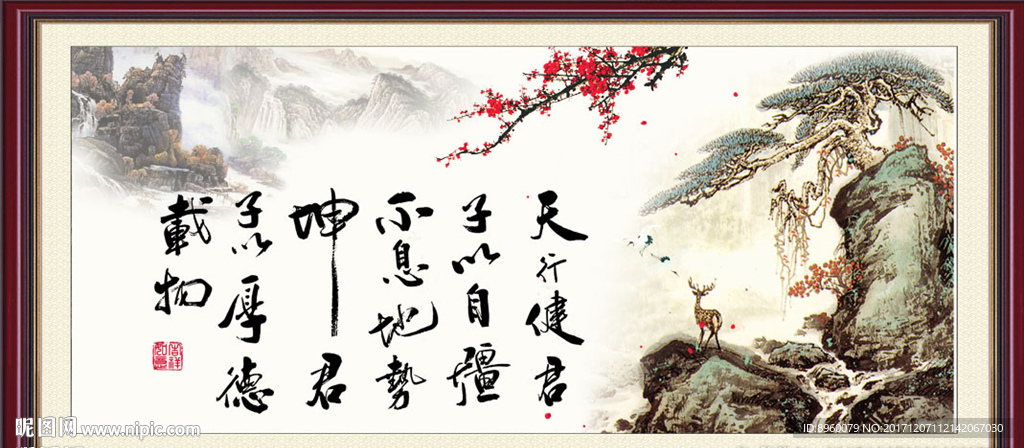 天行健君
子以自疆
不息地勢
坤君
子以厚德
載物
吉祥如意
昵图网 www.nipic.com
ID:8960079 NO:20171207112142067030